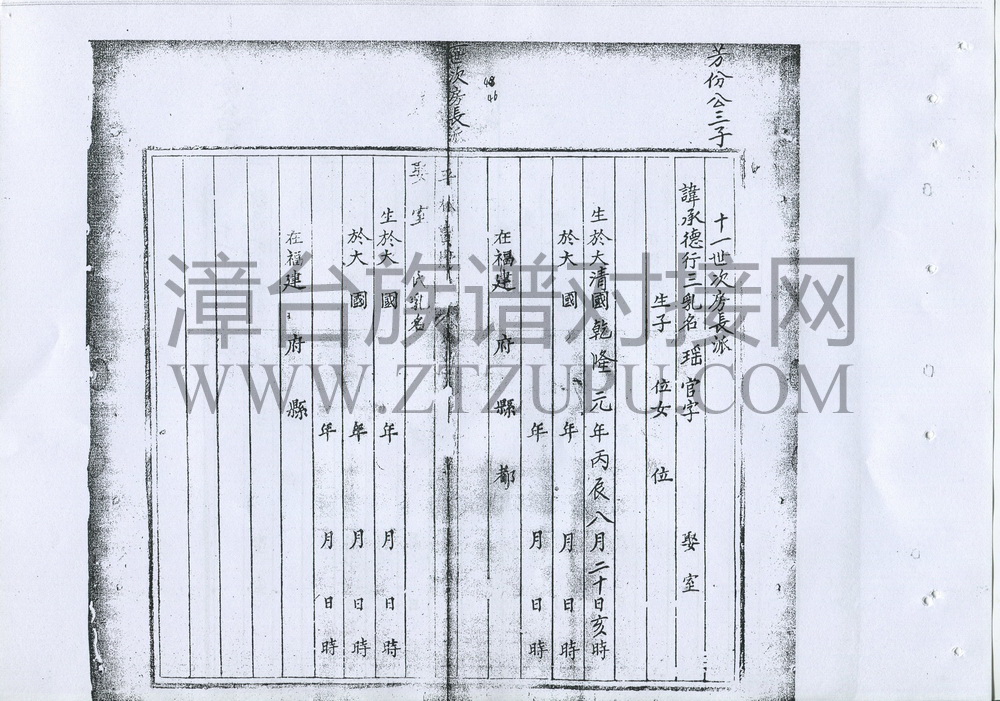 芳份公三子
十一世次房長派
諱承德行三乳名瑶官字 娶室
生子 位女 位
生於大清國乾隆元年丙辰八月二十日亥時
於大 國 年 月 日 時
年 月 日 時
在福建 府 縣 都
世次房長派
娶室 氏乳名
生於大 國 年 月 日 時
於大 國 年 月 日 時
年 月 日 時
在福建 府 縣
漳台族谱对接网
WWW.ZTZUPU.COM